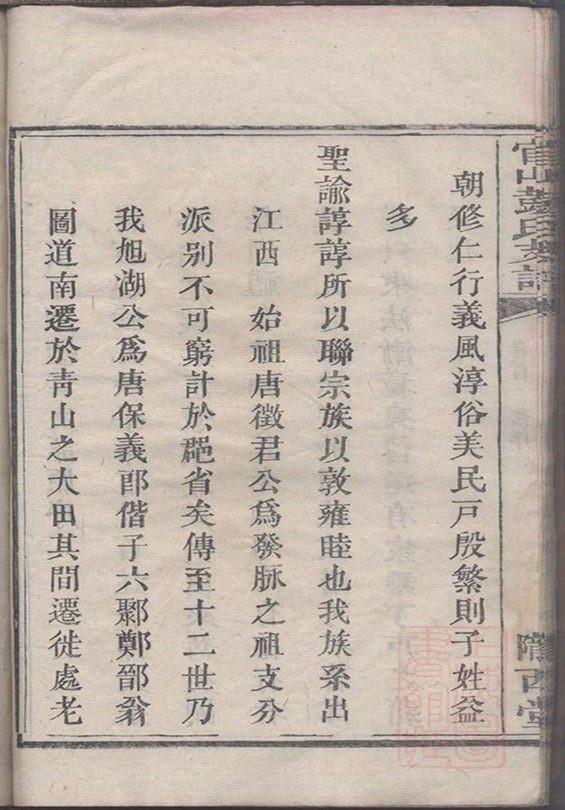 官山彭氏族譜
隴西堂
朝修仁行義風淳俗美民戶殷繁則子姓益
多
聖諭諄諄所以聯宗族以敦雍睦也我族系出
江西 始祖唐徵君公為發脈之祖支分
派別不可窮計於郡省矣傳至十二世乃
我旭湖公為唐保義郎偕子六鄹鄭鄑翁
圖道南遷於靑山之大田其間遷徙處老